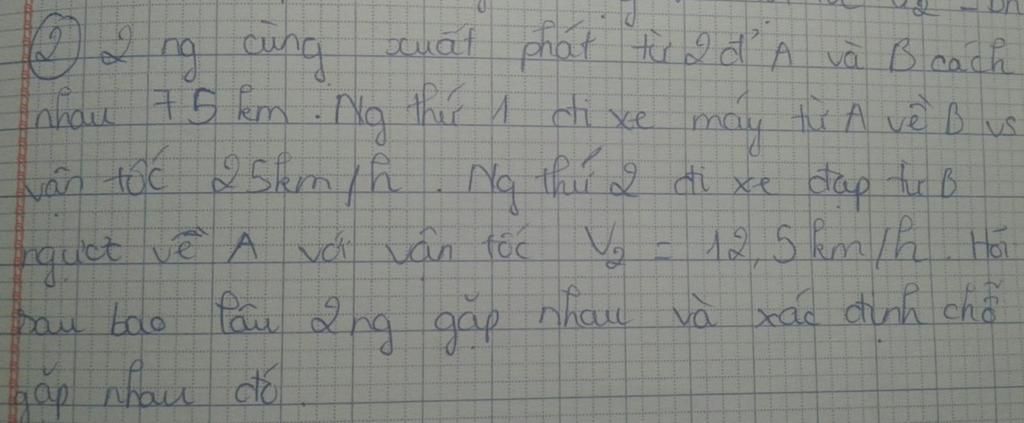 ② 2 ng cùng xuất phát từ 2 đ' A và B cách
nhau 75 km. Ng thứ 1 đi xe máy từ A về B vs
vận tốc 25km/h. Ng thứ 2 đi xe đạp từ B
ngược về A với vận tốc V₂ = 12,5km/h. Hỏi
sau bao lâu 2ng gặp nhau và xác định chỗ
gặp nhau đó.